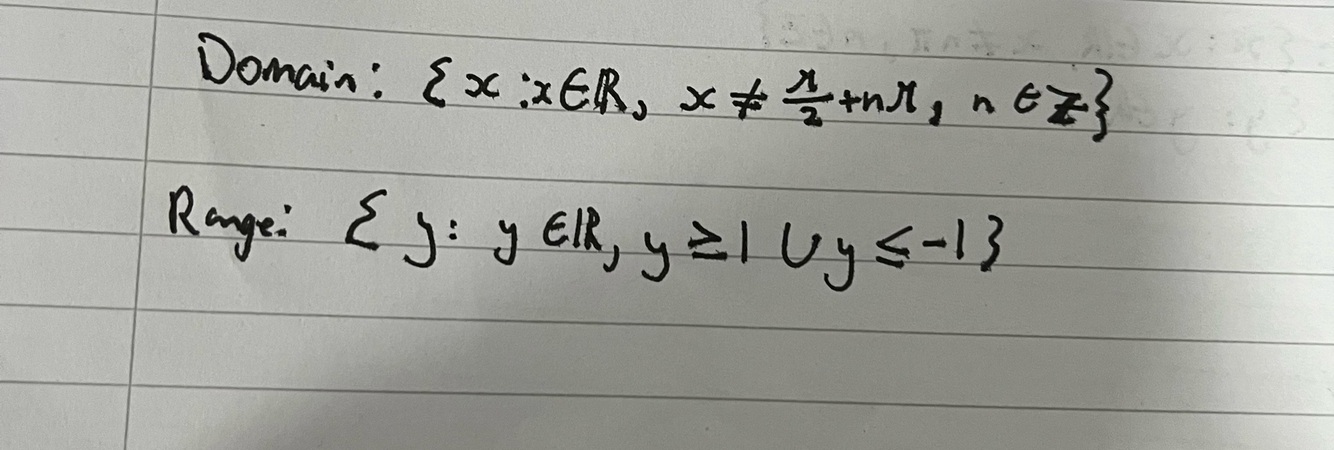 Domain: {x :x∈ℝ, x ≠ π/2 +nπ, n ∈ ℤ}
Range: { y: y ∈ℝ, y ≥1 ∪ y ≤ -1}